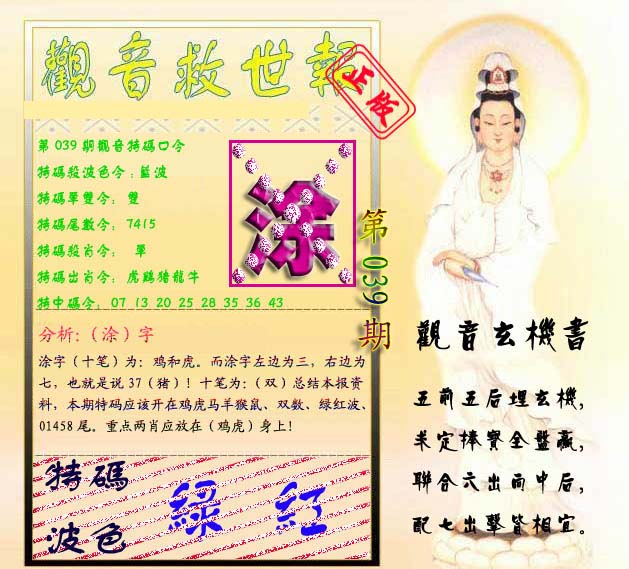 觀音救世報
正版
第039期觀音特碼口令
特碼殺波色令:藍波
特碼單雙令: 雙
特碼尾數令: 7415
特碼殺肖令: 單
特碼出肖令: 虎鷄猪龍牛
特中碼令: 07 13 20 25 28 35 36 43
涂
第039期
分析:(涂)字
涂字(十笔)为:鸡和虎。而涂字左边为三,右边为
七,也就是说37(猪)!十笔为:(双)总结本报资
料,本期特码应该开在鸡虎马羊猴鼠、双数、绿红波、
01458尾。重点两肖应放在(鸡虎)身上!
特碼
波色
綠 紅
觀音玄機書
五前五后埋玄機,
未定捧寶全盤贏,
聯合六出而中后,
配七出擊皆相宜。